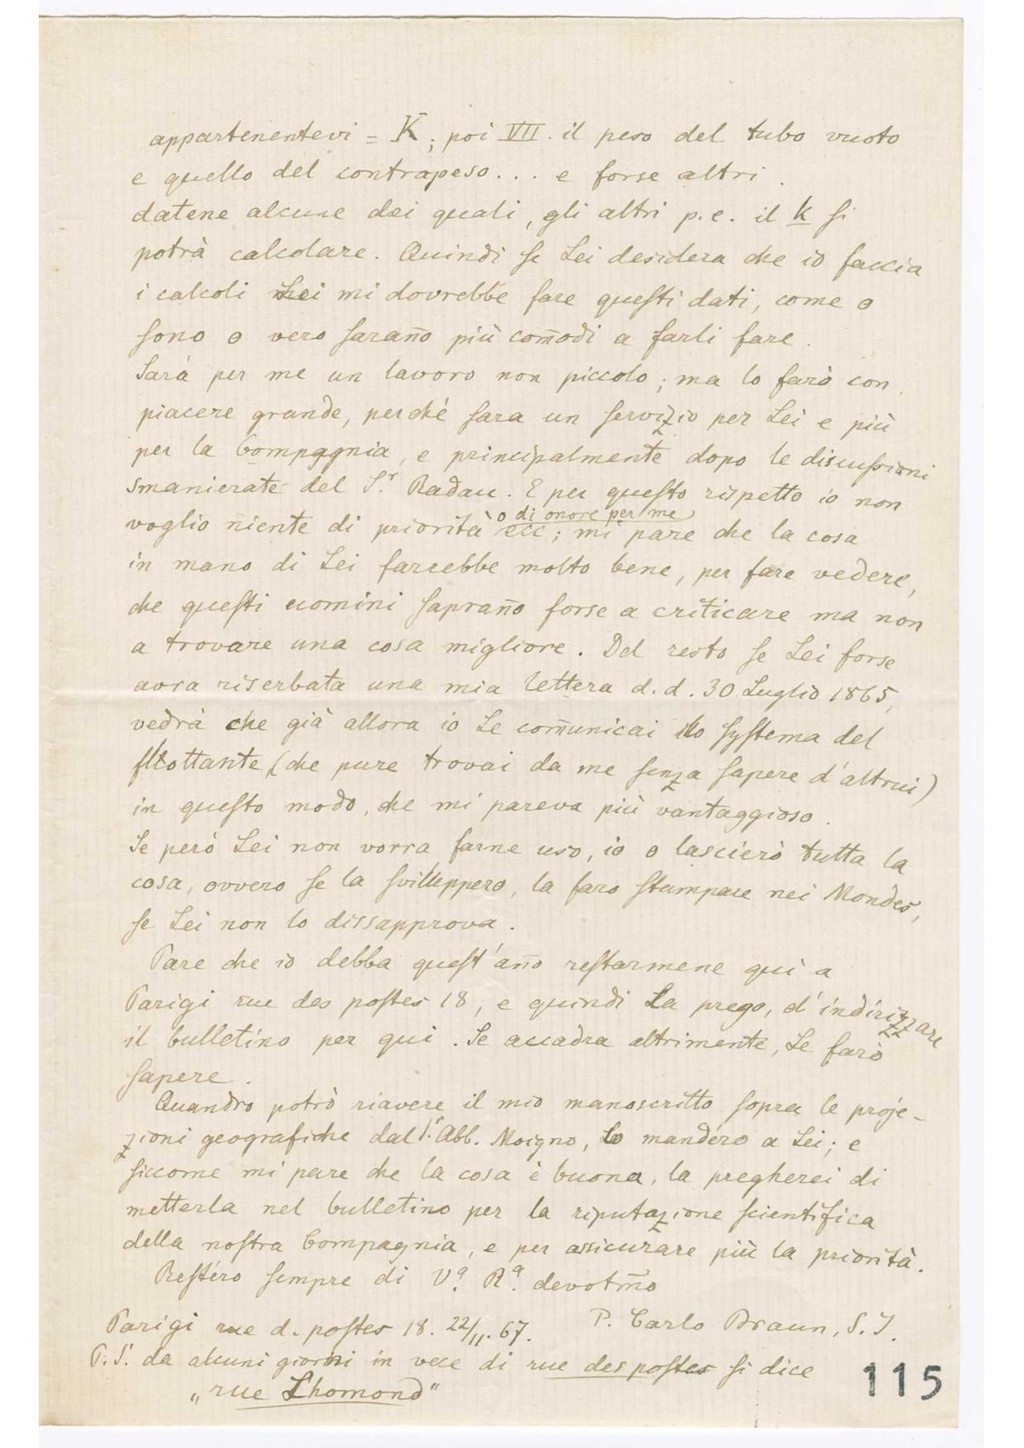 appartenentevi = K; poi VII. il peso del tubo vuoto
e quello del contrapeso... e forse altri.
datene alcune dei quali, gli altri p. e. il k si
potrà calcolare. Quindi se Lei desidera che io faccia
i calcoli Lei mi dovrebbe fare questi dati, come o
sono o vero sarano̅ più com̅odi a farli fare.
Sarà per me un lavoro non piccolo; ma lo farò con
piacere grande, perché sara un servizio per Lei e più
per la Compagnia, e principalmente dopo le discussioni
smanierate del S.r Radau. E per questo rispetto io non
voglio niente di priorità o di onore per me ecc; mi pare che la cosa
in mano di Lei farebbe molto bene, per fare vedere,
che questi uomini saprano̅ forse a criticare ma non
a trovare una cosa migliore. Del resto se Lei forse
avra riserbata una mia lettera d. d. 30 Luglio 1865,
vedrà che già allora io Le com̅unicai lo systema del
flottante (che pure trovai da me senza sapere d'altrui)
in questo modo, che mi pareva più vantaggioso.
Se però Lei non vorra farne uso, io o lascierò tutta la
cosa, ovvero se la svilleppero, la faro stampare nei Mondes,
se Lei non lo dissapprova.
Pare che io debba quest'an̅o restarmene qui a
Parigi rue des postes 18, e quindi La prego, d'indirizzare
il bulletino per qui. Se accadra altrimente, Le farò
sapere.
Quandro potrò riavere il mio manoscritto sopra le proje-
zioni geografiche dal S.r Abb. Moigno, lo mandero a Lei; e
siccome mi pare che la cosa è buona, la pregherei di
metterla nel bulletino per la riputazione scientifica
della nostra Compagnia, e per assicurare più la priorità.
Restero sempre di V.a R.a devotm̅o
Parigi rue d. postes 18. 22/11. 67. P. Carlo Braun, S. J.
P. S. da alcuni giorni in vece di rue des postes si dice
„rue Lhomond"
115